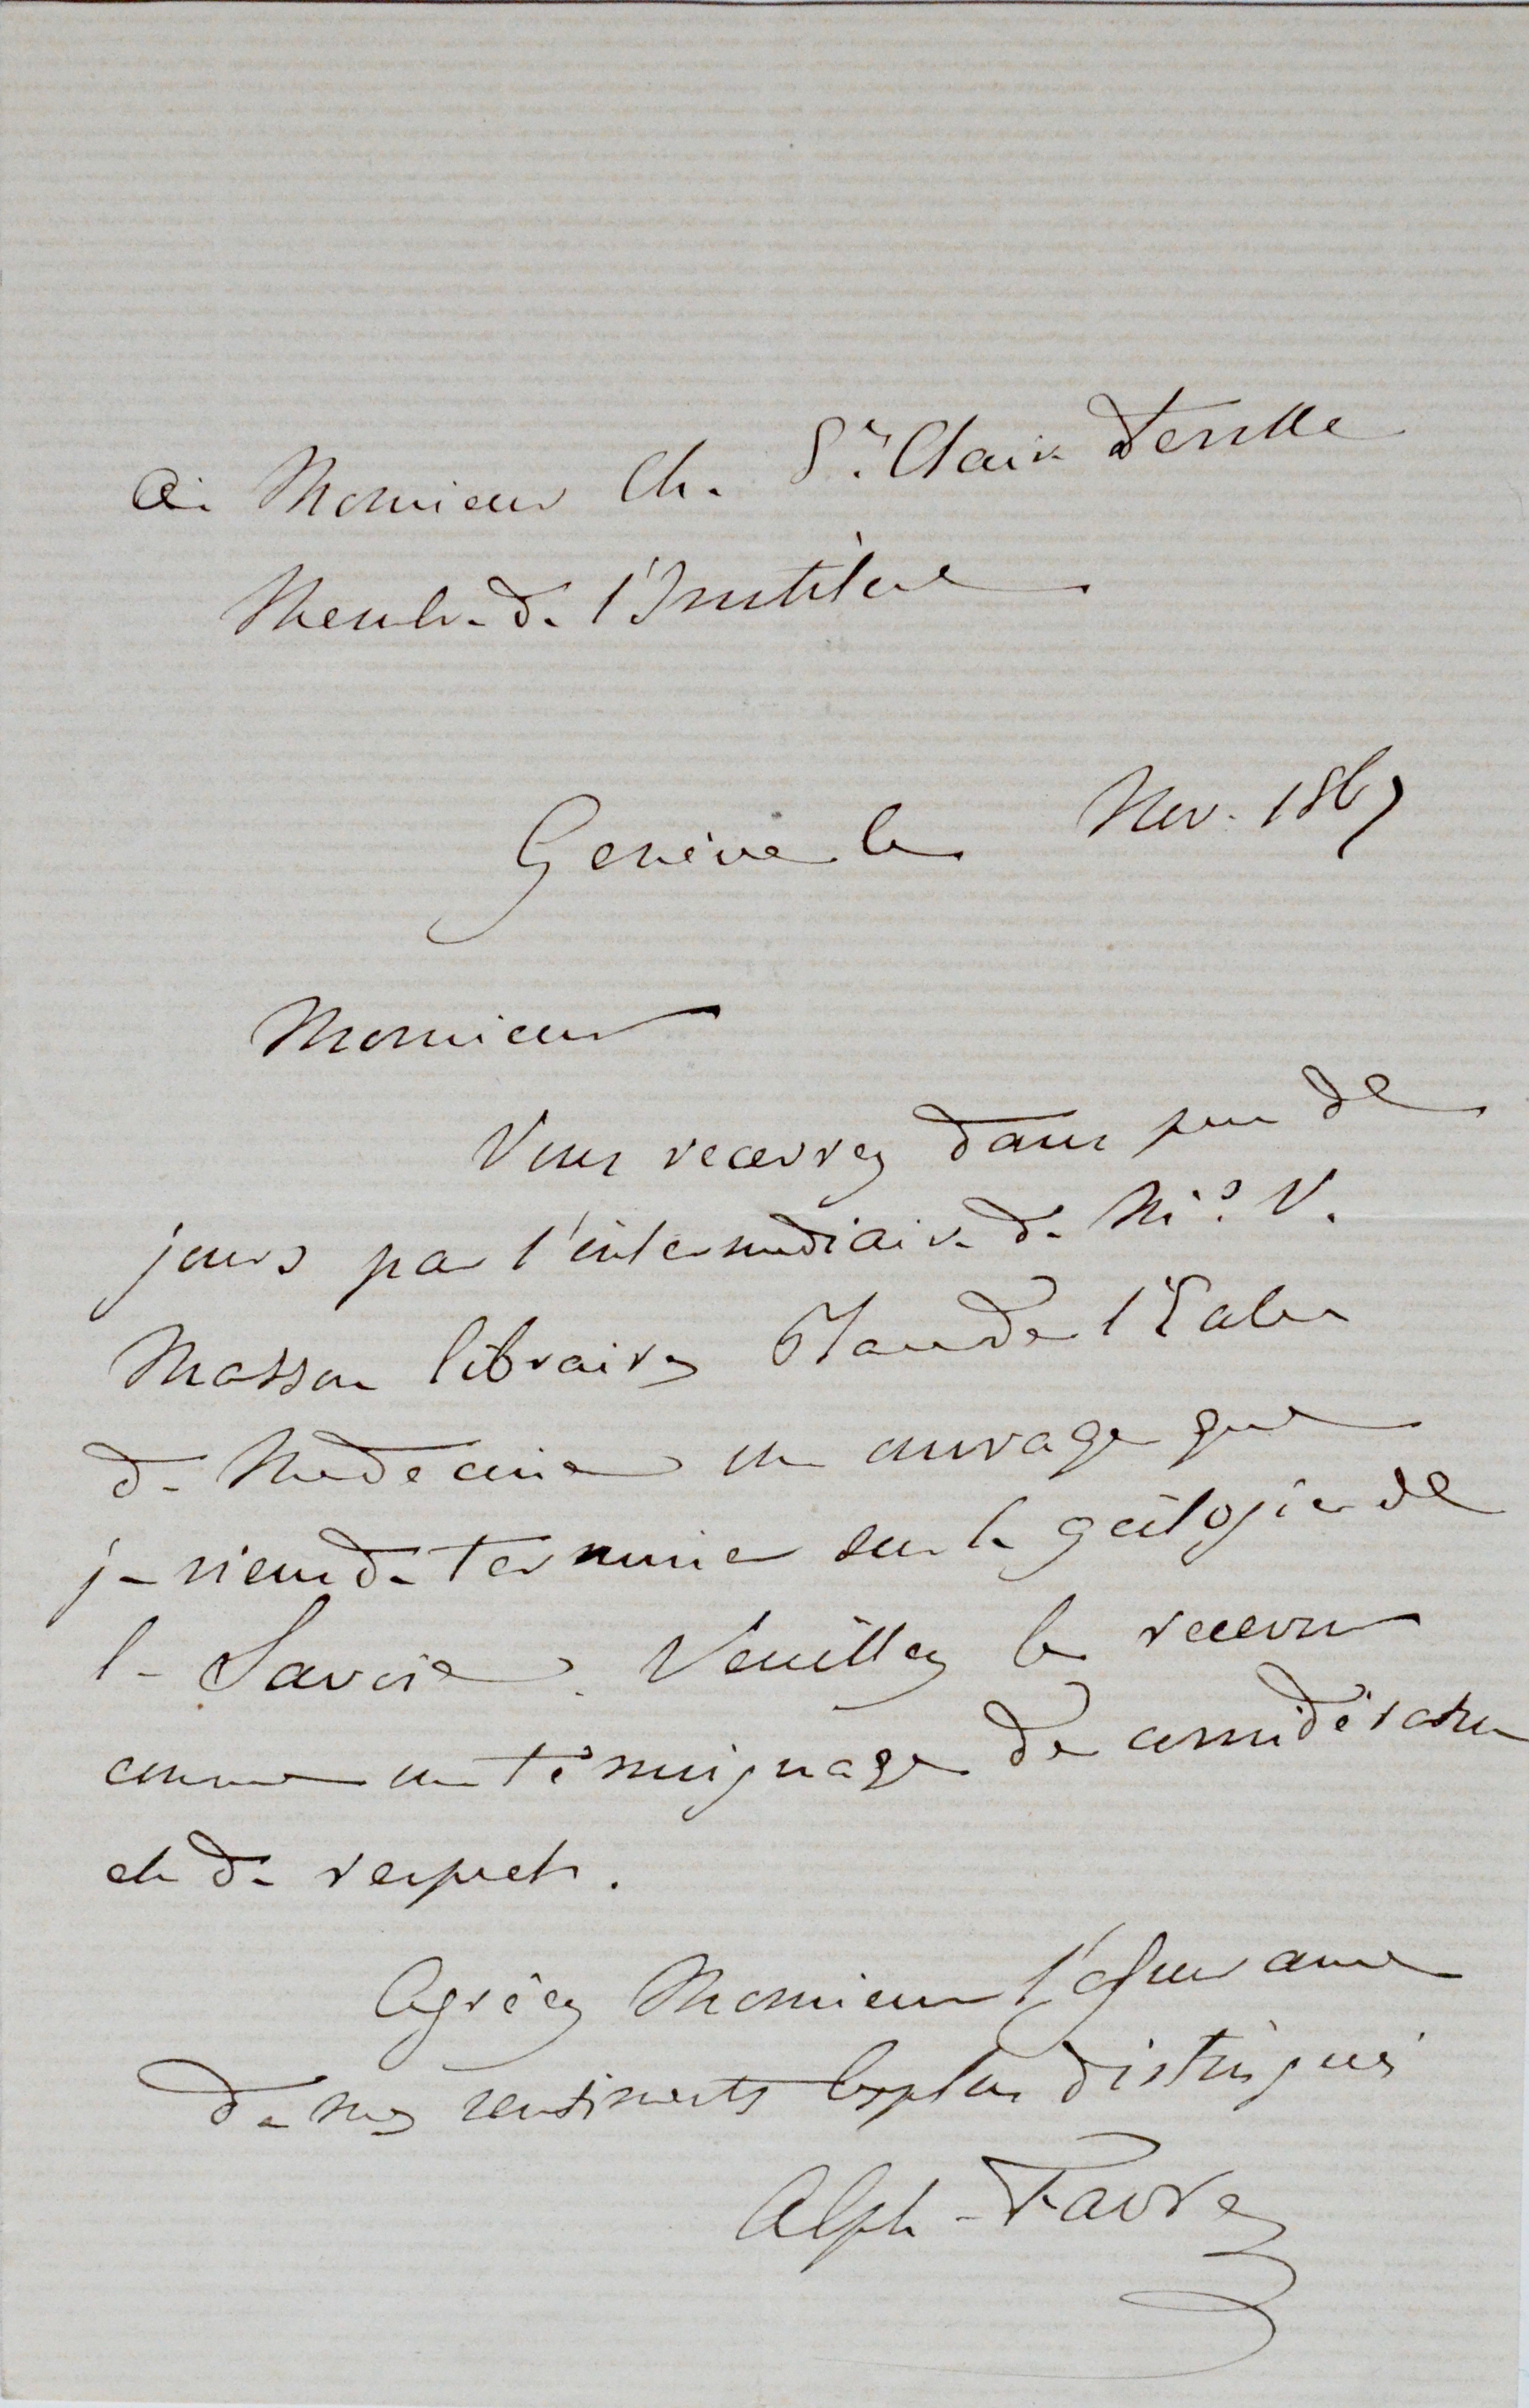 à Monsieur Ch. Ste. Claire Deville
Membre de l'Institut
Genève le Nov. 1867
Monsieur
Vous recevrez dans peu de
jours par l'intermédiaire de Mr. V.
Masson libraire Place de l'Ecole
de Médecine un ouvrage que
je viens de terminer sur la géologie de
la Savoie. Veuillez le recevoir
comme un témoignage de considération
et de respect.
Agréez Monsieur l'assurance
de mes sentiments les plus distingués
Alph. Favre